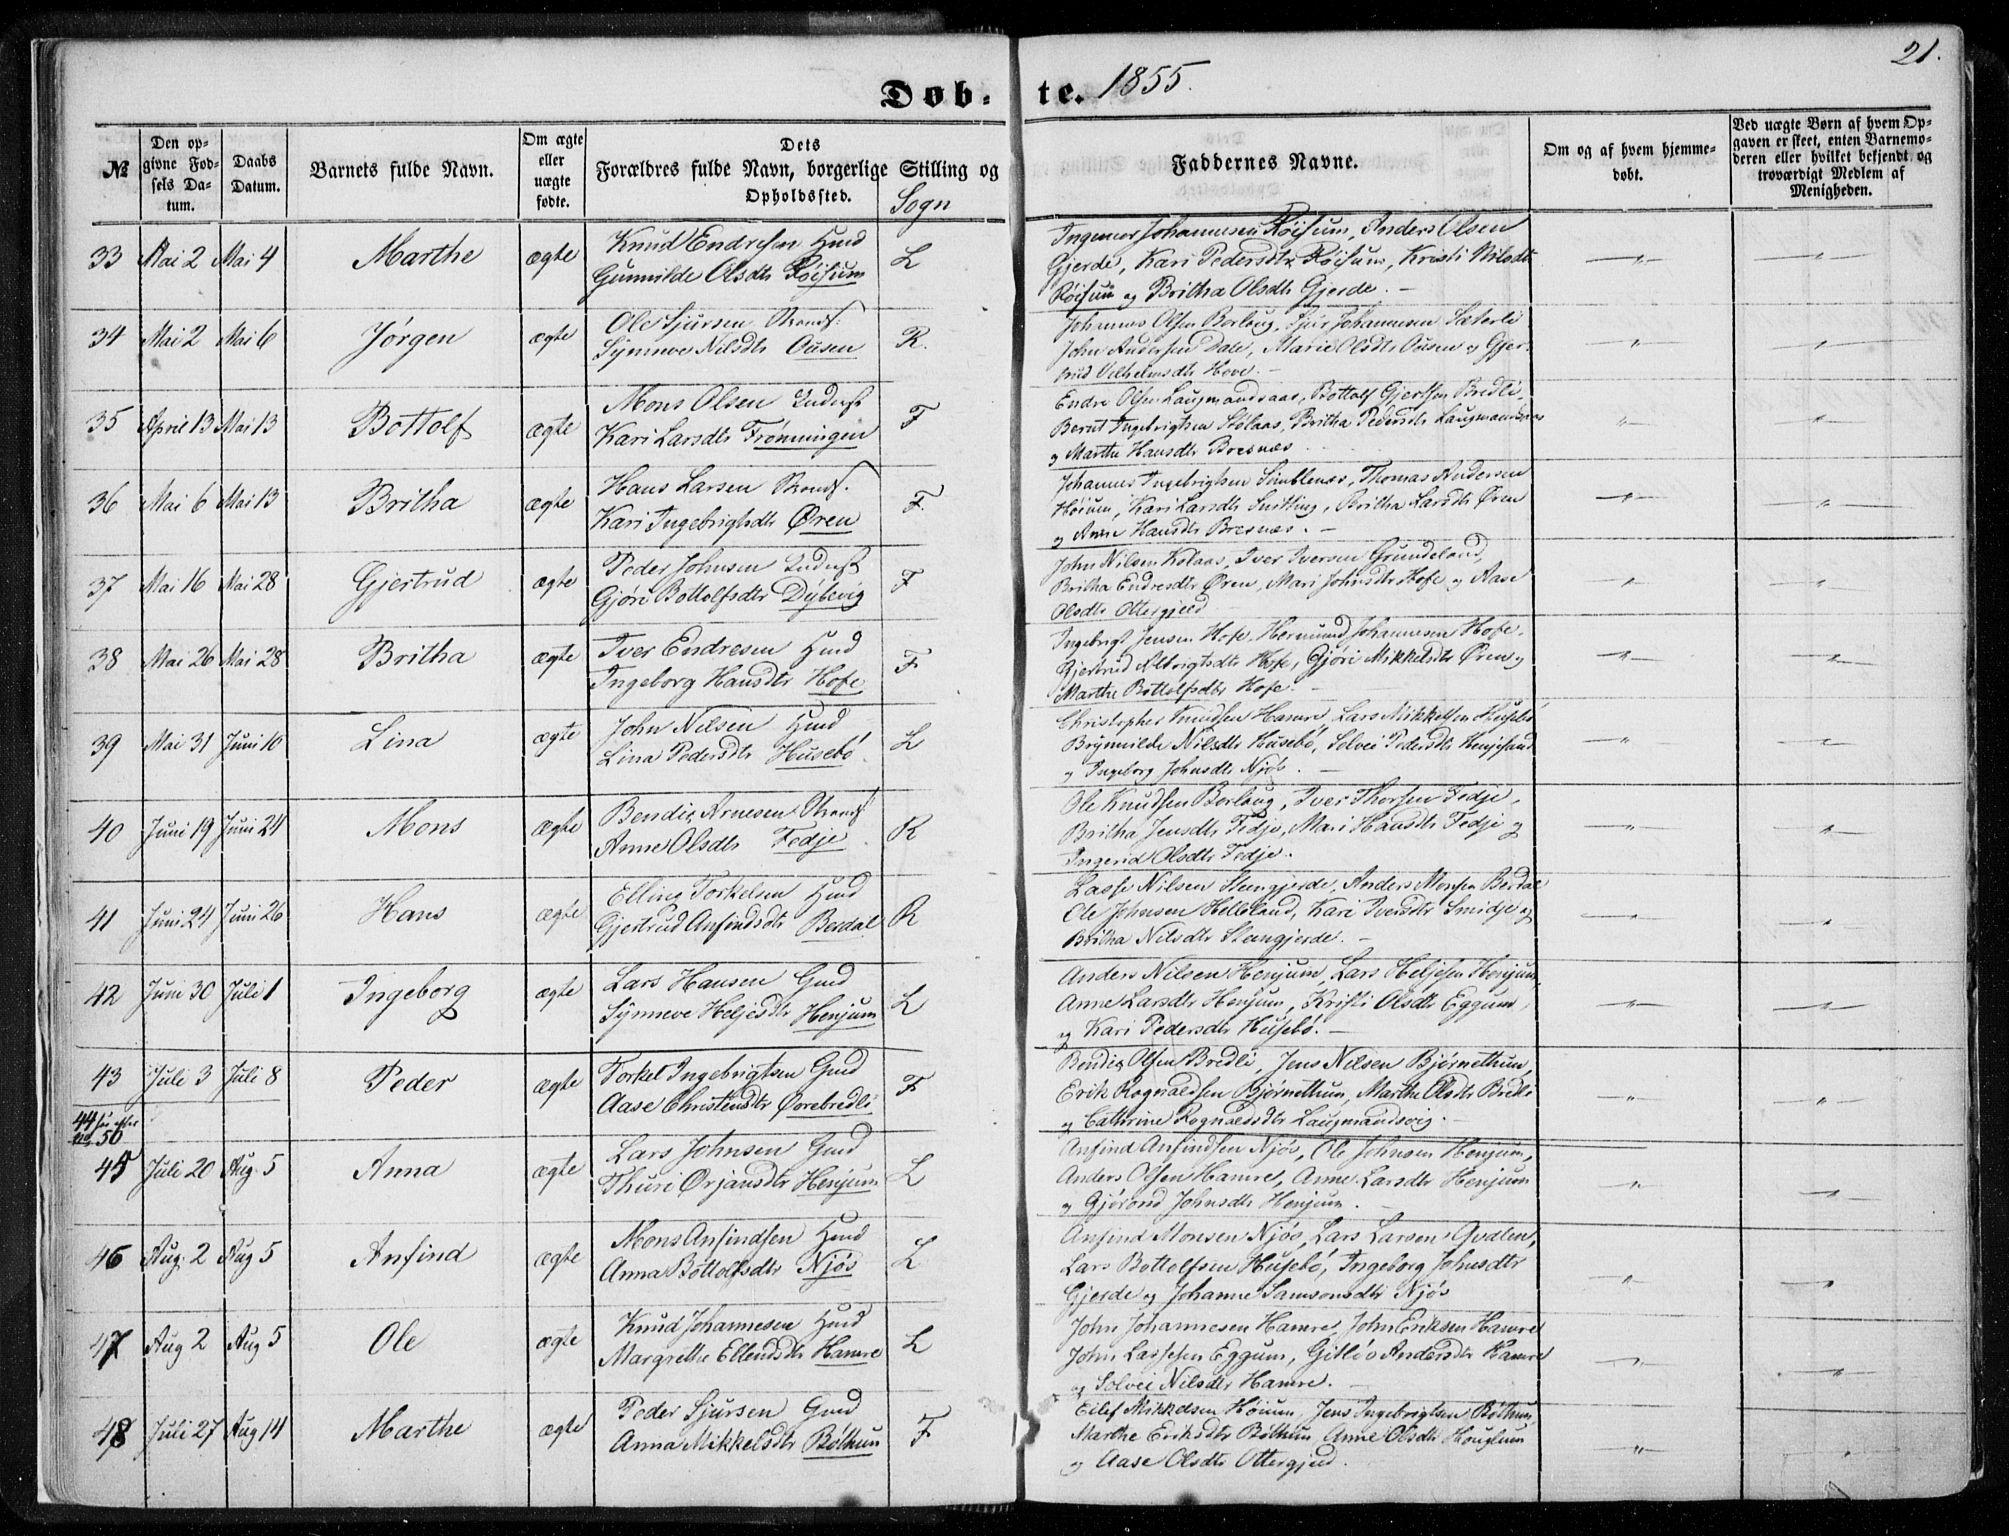 21.
Døb- te. 1855.
№
Den op-
givne Fød-
sels Da-
tum.
Daabs
Datum.
Barnets fulde Navn.
Om ægte
eller
uægte
fødte.
Dets
Forældres fulde Navn, borgerlige Stilling og
Opholdssted.
Sogn
Faddernes Navne.
Om og af hvem hjemme-
døbt.
Ved uægte Børn af hvem Op-
gaven er skeet, enten Barnemo-
deren eller hvilket bekjendt og
troværdigt Medlem af
Menigheden.
33 Mai 2 Mai 4 Marthe ægte Knud Endresen Hmd L
Gunnilde Olsdtr Røisum
Ingemer Johannesen Røisum, Anders Olsen
Gjerde, Kari Pedersdtr Røisum, Kristi Nilsdtr
Røisum og Britha Olsdtr Gjerde. —
34 Mai 2 Mai 6 Jørgen ægte Ole Sjursen Strands. R.
Synneve Nilsdtr Ousen
Johannes Olsen Borlaug, Sjur Johannesen Sæterli
John Andersen Dale, Marie Olsdtr Ousen og Gjer-
trud Vilhelmsdtr Hove. —
35 April 13 Mai 13 Bottolf ægte Mons Olsen Inderst F
Kari Larsdtr Frønningen
Endre Olsen Laugmandsaas, Bottolf Gjertsen Bredli,
Bernt Ingebrigtsen Stølaas, Britha Pedersdtr Laugmandsaas
og Marthe Hansdtr Bresnæs
36 Mai 6 Mai 13 Britha ægte Hans Larsen Strands. F.
Kari Ingebrigtsdtr Øren
Johannes Ingebrigtsen Simblenæs, Thomas Andersen
Høium, Kari Larsdtr Snitting, Britha Larsdtr Øren
og Anne Hansdtr Bresnæs. —
37 Mai 16 Mai 28 Gjertrud ægte Peder Johnsen Inderst F
Gjøri Bottolfsdtr Dybevig
John Nilsen Kolaas, Iver Iversen Grundeland,
Britha Endresdtr Øren, Mari Johnsdtr Hofe og Aase
Olsdtr Ottergjeld
38 Mai 26 Mai 28 Britha ægte Iver Endresen Hmd F
Ingeborg Hansdtr Hofe
Ingebrigt Jensen Hofe, Hermund Johannesen Hofe,
Gjertrud Albrigtsdtr Hofe, Gjøri Mikkelsdtr Øren og
Marthe Bottolfsdtr Hofe.
39 Mai 31 Juni 10 Lina ægte John Nilsen Hmd L
Lina Pedersdtr Husebø
Christopher Knudsen Hamre, Lars Mikkelsen Husebø
Brynnilde Nilsdtr Husebø, Solvei Pedersdtr
og Ingeborg Johnsdtr Njøs. —
40 Juni 19 Juni 24 Mons ægte Bendix Arnesen Strands R
Anne Olsdtr Fedje
Ole Knudsen Borlaug, Iver Thorsen Fedje,
Britha Jensdtr Fedje, Mari Hansdtr Fedje og
Ingerid Olsdtr Fedje.
41 Juni 24 Juni 26 Hans ægte Elling Torkelsen Hmd R
Gjertrud Anfindsdtr Berdal
Lasse Nilsen Stengjerde, Anders Monsen Berdal
Ole Johnsen Helleland, Kari Iversdtr Smidje og
Britha Nilsdtr Stengjerde. —
42 Juni 30 Juli 1 Ingeborg ægte Lars Hansen Gmd L
Synneve Heljesdtr Henjum
Anders Nilsen Henjum, Lars Heljesen Henjum
Anne Larsdtr Henjum, Kristi Olsdtr Eggum,
og Kari Pedersdtr Husebø. —
43 Juli 3 Juli 8 Peder ægte Torkel Ingebrigtsen Gmd F
Aase Christensdtr Øvrebredli
Bendix Olsen Bredli, Jens Nilsen Bjørnethun,
Erik Rognaldsen Bjørnethun, Marthe Olsdtr Bredli
og Cathrine Rognaldsdtr Laugmandsvig. —
44 see efter
No 50
45 Juli 20 Aug. 5 Anna ægte Lars Johnsen Gmd L
Thuri Ørjansdtr Henjum
Anfind Anfindsen Njøs, Ole Johnsen Henjum,
Anders Olsen Hamre, Anne Larsdtr Henjum
og Gjørond Johnsdtr Henjum.
46 Aug. 2 Aug 5 Anfind ægte Mons Anfindsen Hmd L
Anna Bottolfsdtr Njøs
Anfind Monsen Njøs, Lars Larsen Qvalen,
Lars Bottolfsen Husebø, Ingeborg Johnsdtr
Gjerde og Johanne Samsonsdtr Njøs
47 Aug 2 Aug 5 Ole ægte Knud Johannesen Hmd L
Margrethe Ellendsdtr Hamre
John Johannesen Hamre, John Eriksen Hamre
John Lassesen Eggum, Gitløs Andersdtr Hamre
og Solvei Nilsdtr Hamre. —
48 Juli 27 Aug 14 Marthe ægte Peder Sjursen Gmd F
Anna Mikkelsdtr Bøthun
Eilef Mikkelsen Høium, Jens Ingebrigtsen Bøthun,
Marthe Eriksdtr Bøthun, Anne Olsdtr Houglum
og Aase Olsdtr Ottergjeld.